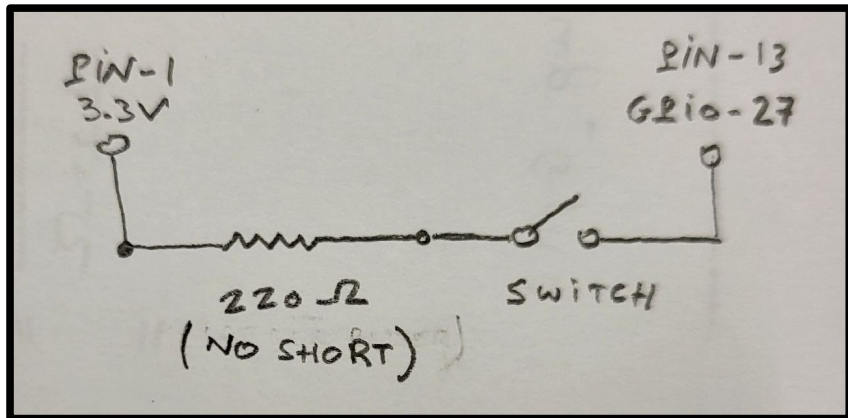 PiN-1
3.3V
PiN-13
GPio-27
220 Ω
(NO SHORT)
SWiTCH